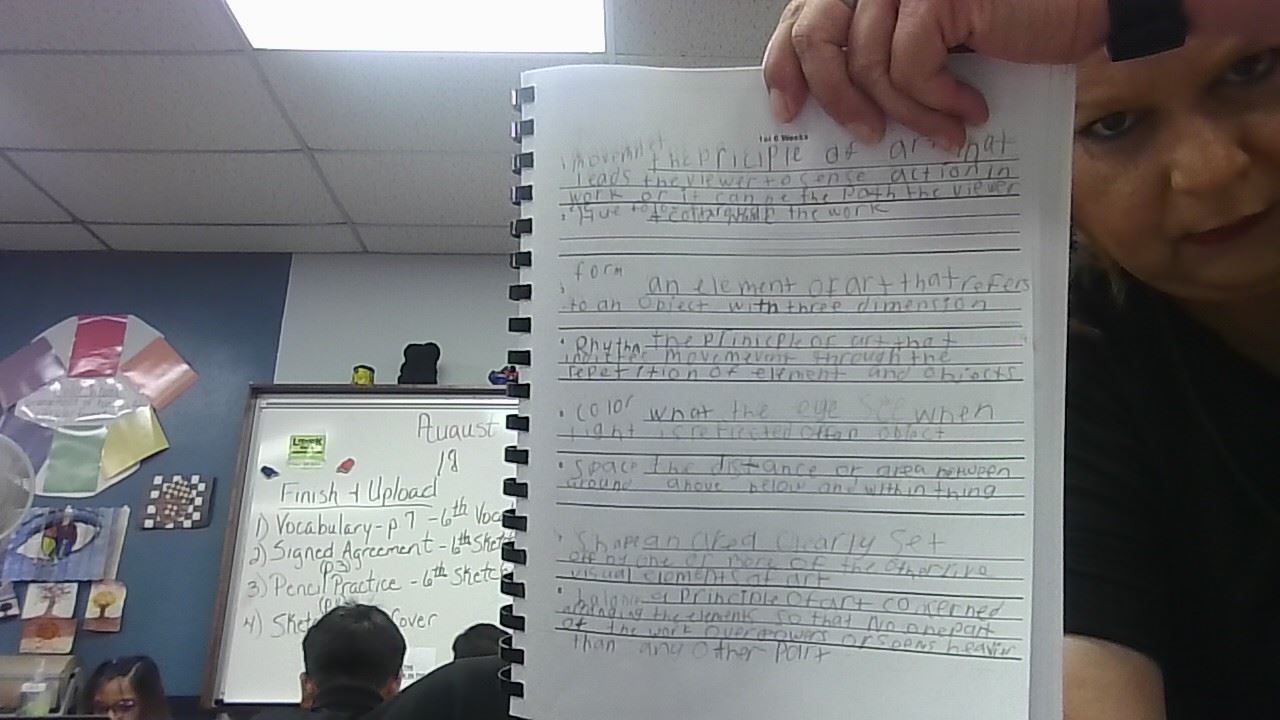 1st 6 Weeks
movemnet the priciple of art that
leads the viewer to sense action in
work or it can be the path the viewer
the work
form
an element of art that refers
to an object with three dimension
Rhythm the prinicple of art that
movement through the
repetition of element and objects
color what the eye see when
light is reflected off an object
space the distance or area between
around above below and within thing
Shape an area clearly set
off by one or more of the other five
visual elements of art
balance a principle of art concerned
arranging the elements so that no one part
of the work overpowers or seems heavier
than any other part
August
18
Finish + Upload
1) Vocabulary - p 7 - 6th Voca
2) Signed Agreement - 6th Sketc
(p3)
3) Pencil Practice - 6th Sketc
4) Sket over